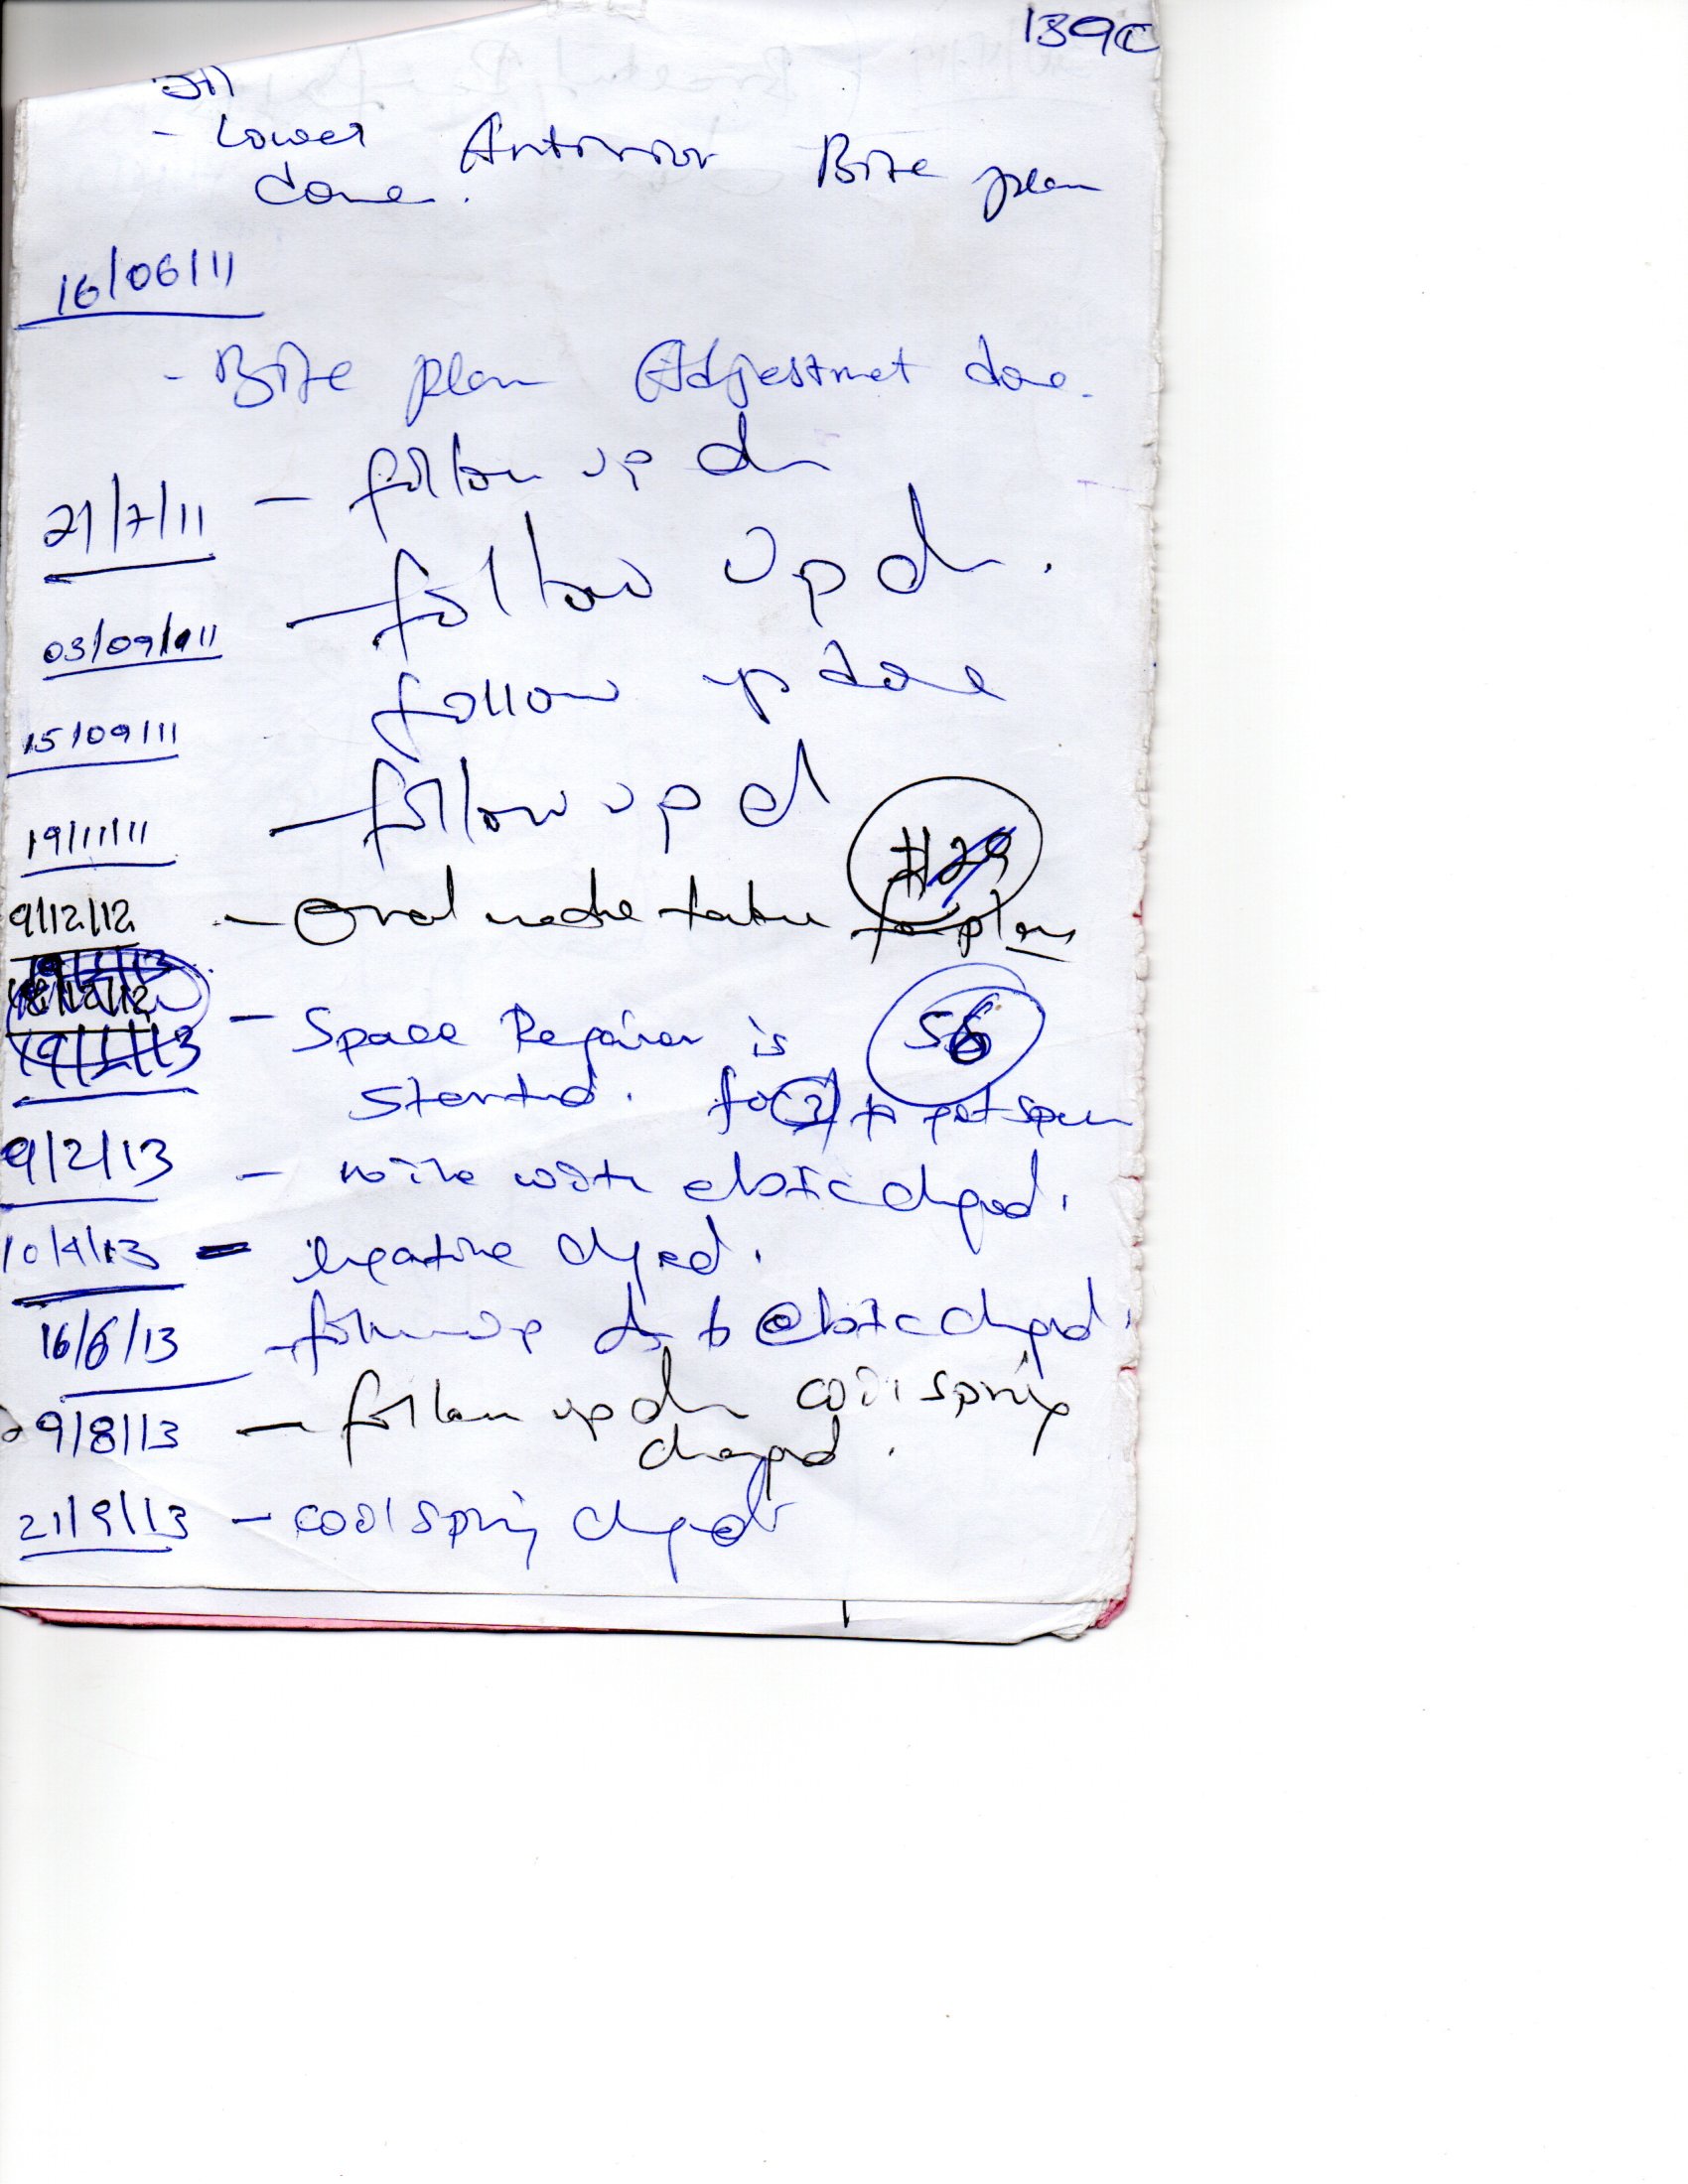 139C
- Lower Anterior Bite plan
done.
16/06/11
- Bite plan Adjestmet done.
21/7/11 - follow up dn
03/09/11 - follow up dn.
15/09/11 follow up done
19/11/11 - follow up d
#29
9/12/12 - Oral taken for plan
18/12/12
19/1/13 - Space Regainer is
56
started. for to get
9/2/13 - wire with elastic chgd.
10/4/13 - chged.
16/6/13 - follow up dn elastic chgd.
9/8/13 - follow up dn coil spring
changed.
21/9/13 - coil spring chgd